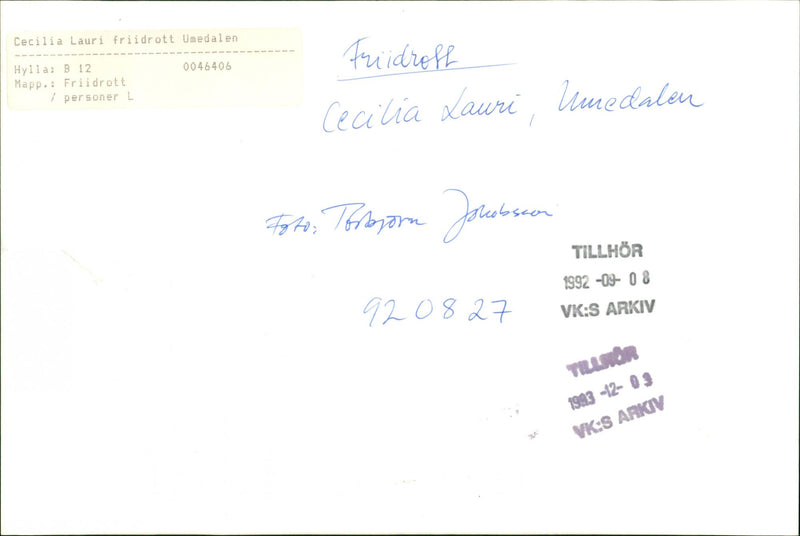 Cecilia Lauri friidrott Umedalen
Hylla: B 12 0046406
Mapp.: Friidrott
/ personer L
Friidrott
Cecilia Lauri, Umedalen
Foto: Torbjörn Jakobsson
920827
TILLHÖR
1992 -09- 08
VK:S ARKIV
TILLHÖR
1993 -12- 03
VK:S ARKIV